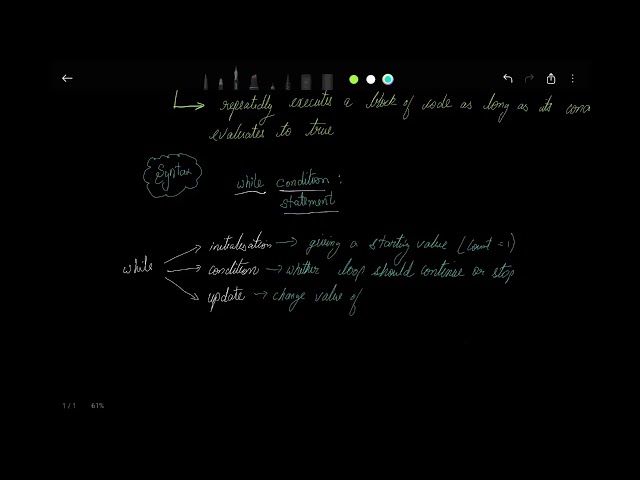 repeatedly executes a block of code as long as its cond
evaluates to true
Syntax
while condition :
statement
while
initialisation → giving a starting value (count = 1)
condition → whether loop should continue or stop
update → change value of
1 / 1 61%